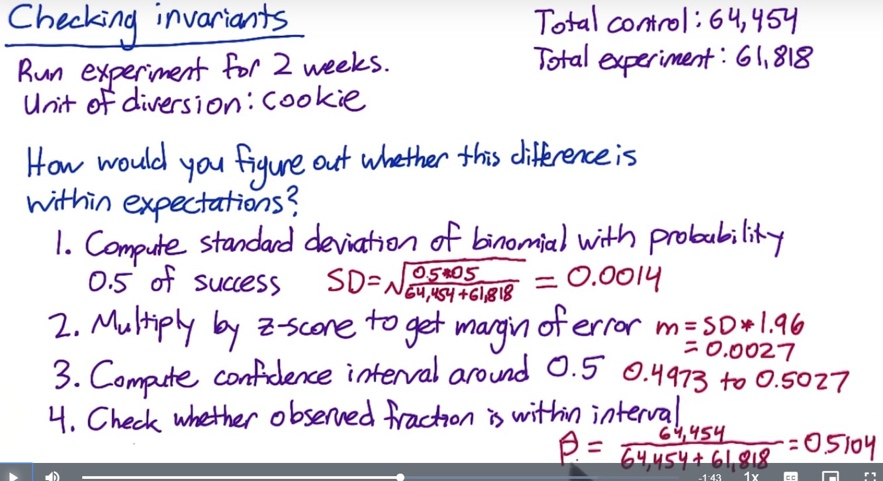 Checking invariants
Total control: 64,454
Total experiment: 61,818
Run experiment for 2 weeks.
Unit of diversion: cookie
How would you figure out whether this difference is
within expectations?
1. Compute standard deviation of binomial with probability
0.5 of success SD=√(0.5*0.5 / 64,454+61,818) = 0.0014
2. Multiply by z-score to get margin of error m=SD*1.96
=0.0027
3. Compute confidence interval around 0.5 0.4973 to 0.5027
4. Check whether observed fraction is within interval
p̂ = 64,454 / 64,454+61,818 = 0.5104
-1:43 1x CC